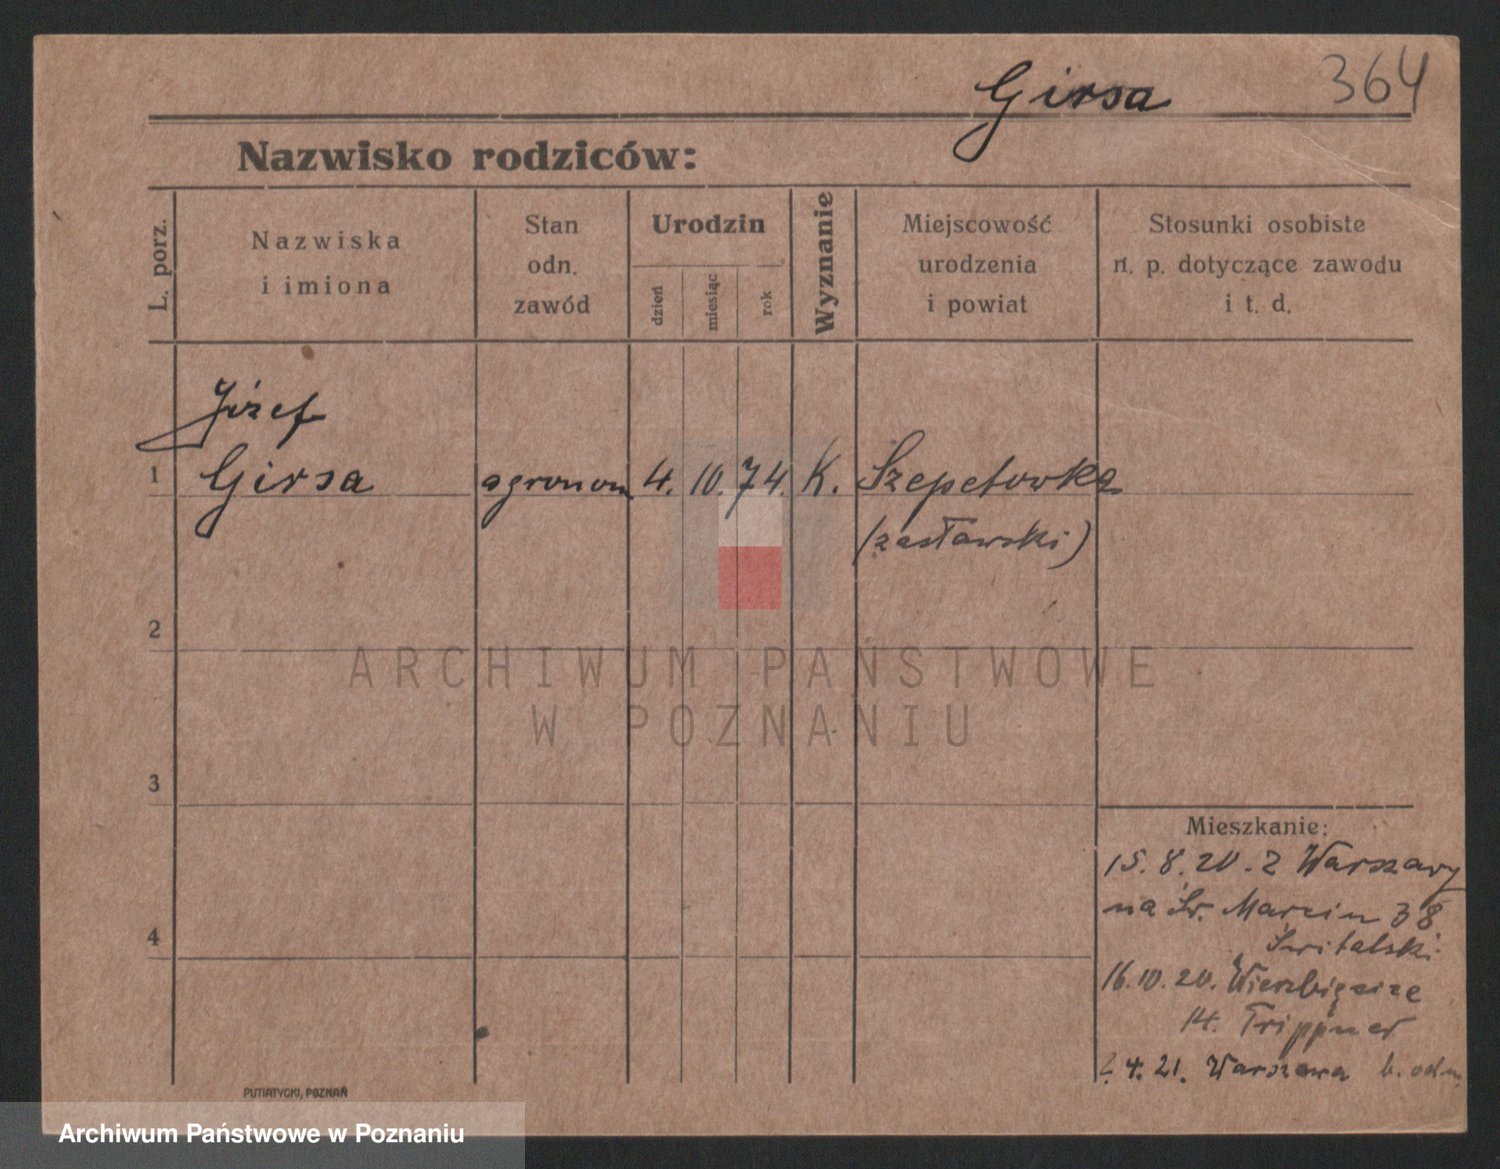 Girsa 364
Nazwisko rodziców:
L. porz.
Nazwiska
i imiona
Stan
odn.
zawód
Urodzin
dzień
miesiąc
rok
Wyznanie
Miejscowość
urodzenia
i powiat
Stosunki osobiste
n. p. dotyczące zawodu
i t. d.
Józef
1 Girsa agronom 4. 10. 74. K. Szepetowka
(zasławski)
2
3
4
Mieszkanie:
15.8.20. z Warszawy
na Św. Marcin 38
Świtalski
16.10.20. Wierzbięcice
14. Trippner
4.21. Warszawa b. odm
PUTIATYCKI, POZNAŃ
ARCHIWUM PAŃSTWOWE
W POZNANIU
Archiwum Państwowe w Poznaniu